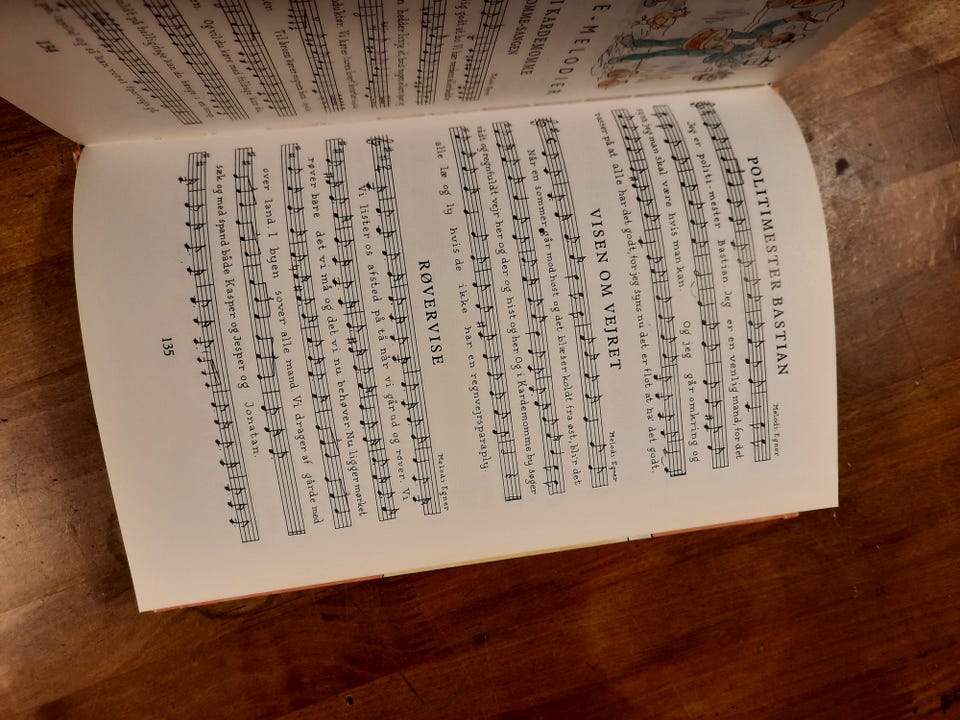 E-MELODIER
KARDEMOMME
OMME-SANGEN
134
POLITIMESTER BASTIAN
Melodi: Egner
Jeg er politi-mester Bastian. Jeg er en venlig mand, for det
synes jeg man skal være hvis man kan Og jeg går omkring og
passer på at alle har det godt, for jeg syns nu det er flot at ha' det godt.
VISEN OM VEJRET
Melodi: Egner
Når en sommer går mod høst og det blæser koldt fra øst, blir det
rådt og regnfuldt vejr her og der og hist og her. Og i Kardemomme by søger
alle læ og ly hvis de ikke har en regnvejrsparaply.
RØVERVISE
Melodi: Egner
Vi lister os afsted på tå når vi går ud og røver. Vi
røver bare det vi må og det vi nu behøver. Nu ligger mørket
over land. I byen sover alle mand. Vi drager af gårde med
sæk og med spand både Kasper og Jesper og Jonatan.
135